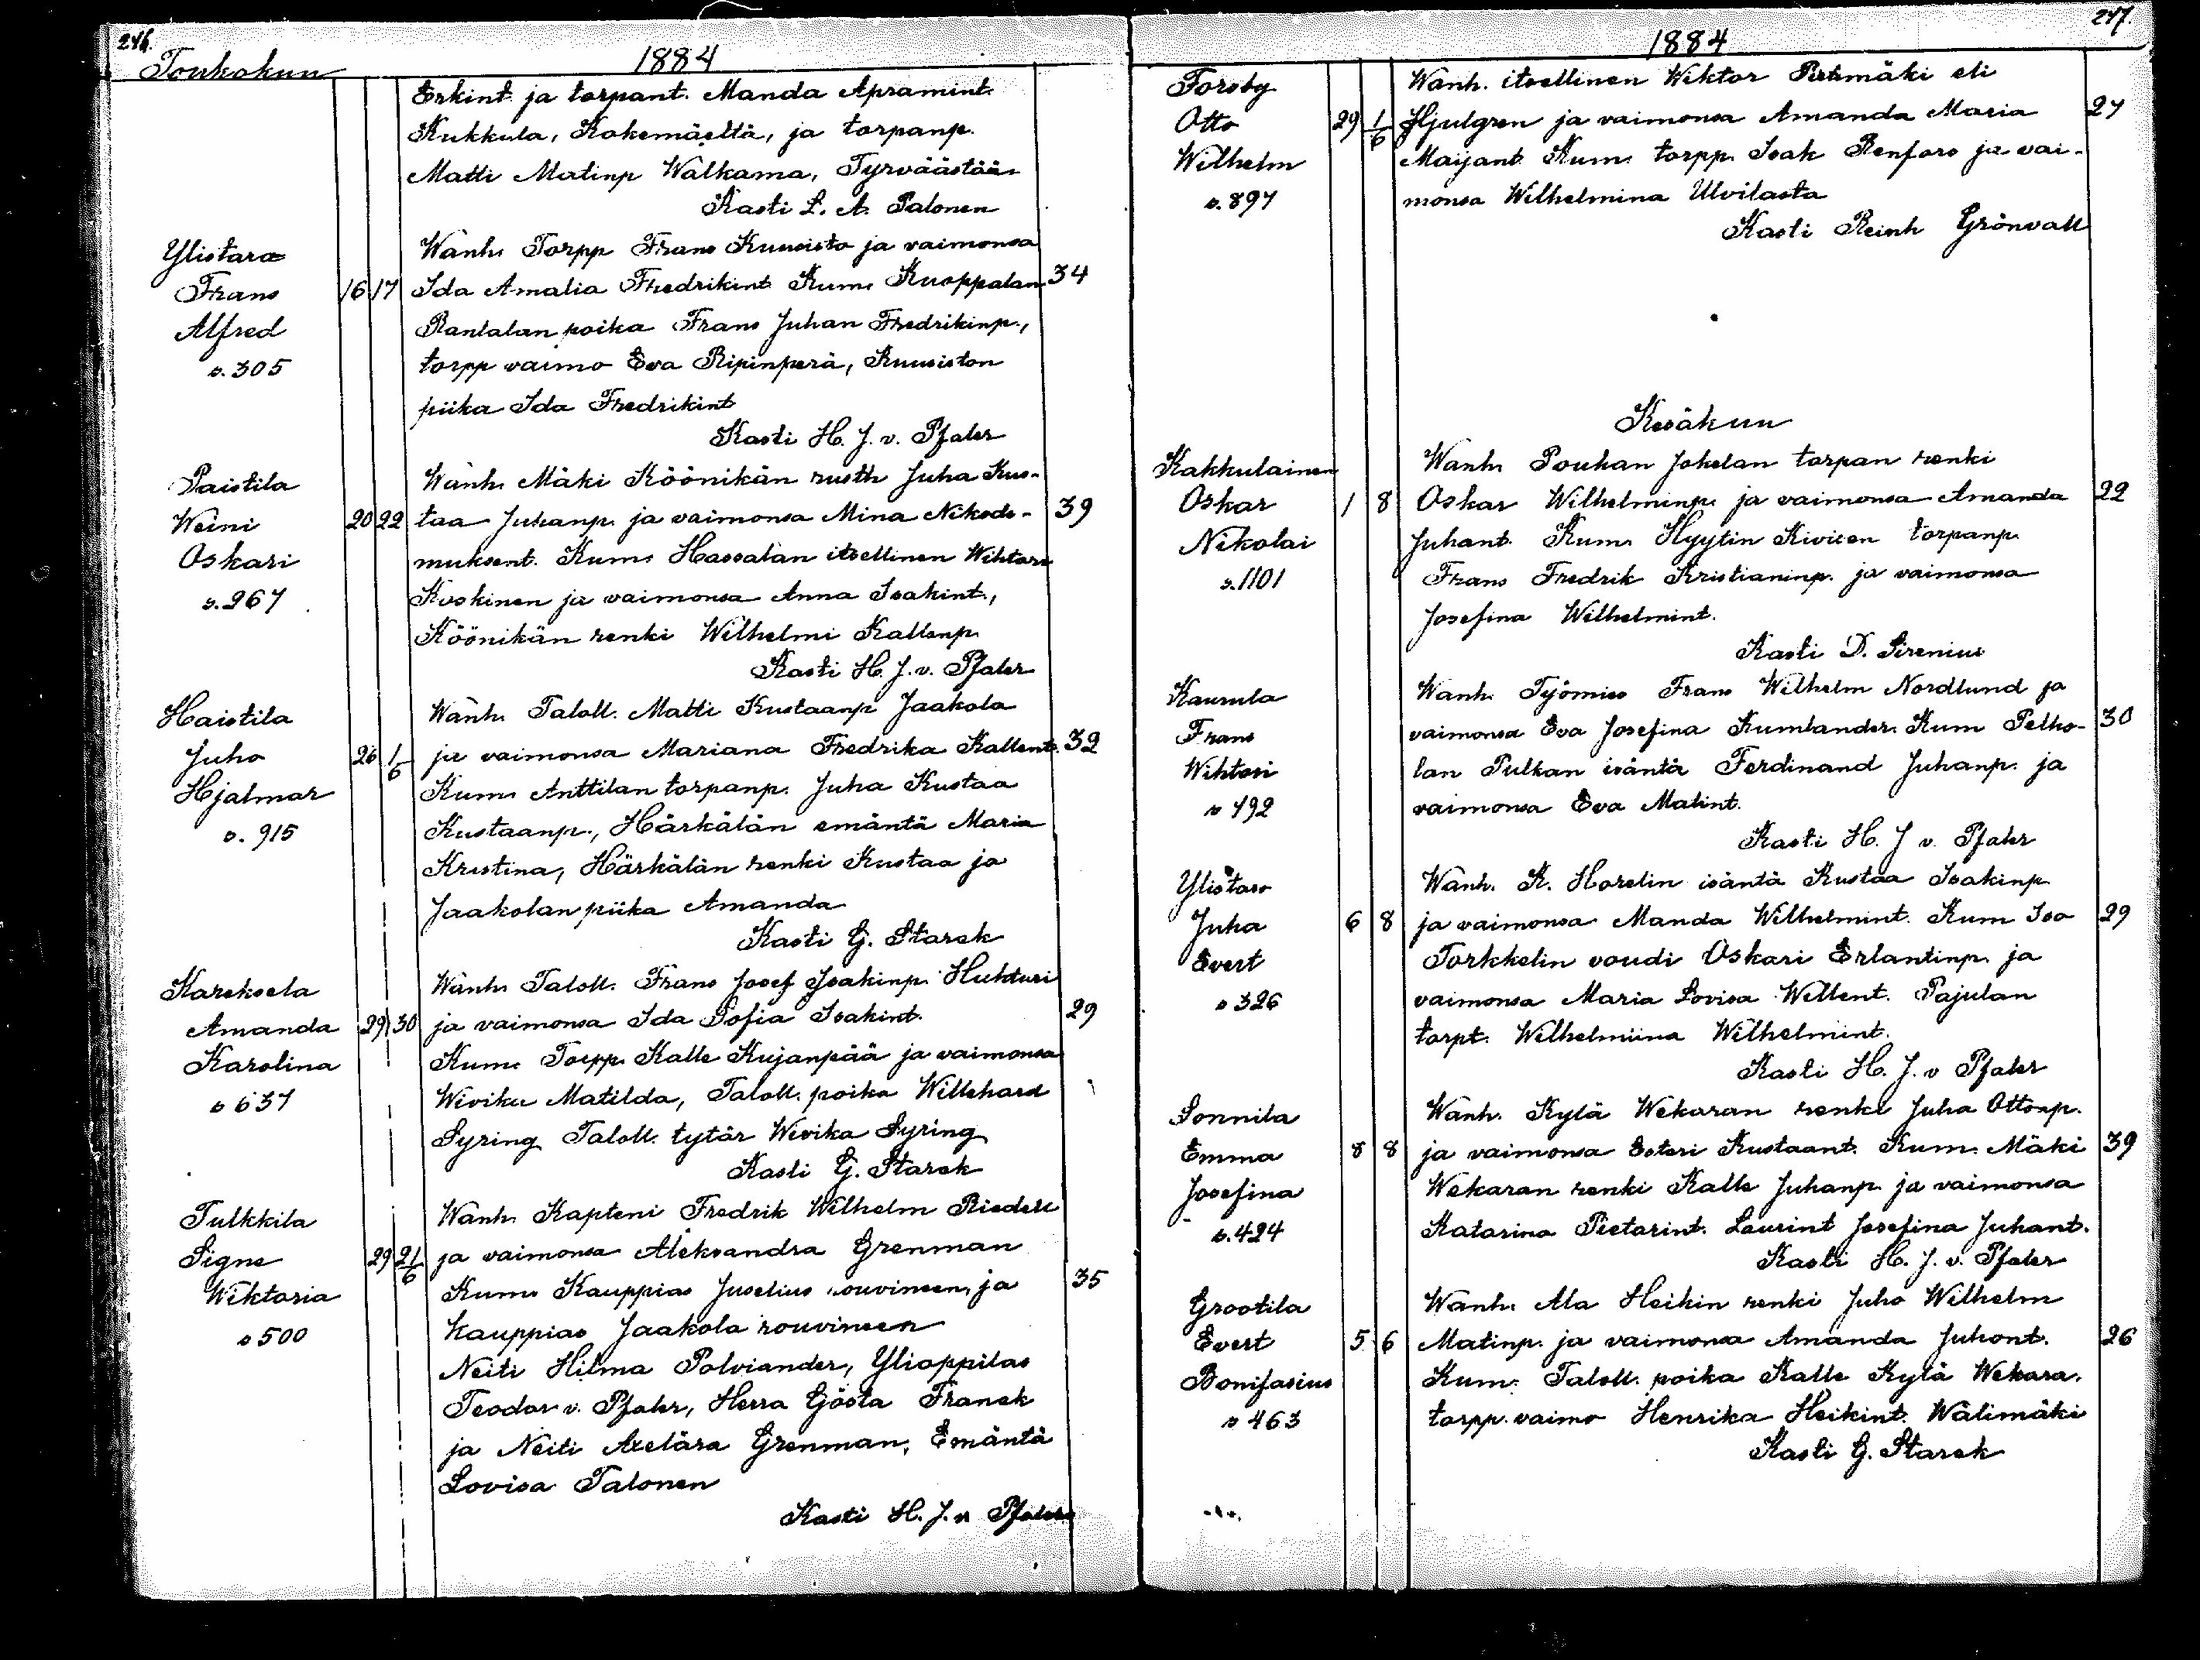 246.
Toukokuu
1884
Erkint. ja torpant. Manda Apramint.
Kukkula, Kokemäeltä, ja torpanp.
Matti Matinp Walkama, Tyrväästää
Kasti L. A. Palonen
Ylistaro
Frans
Alfred
s. 305
16 17
Wanh. Torpp Frans Kuusisto ja vaimonsa
Ida Amalia Fredrikint Kum. Kuoppalan
Rantalan poika Frans Juhan Fredrikinp.,
torpp vaimo Eva Ripinperä, Kuusiston
piika Ida Fredrikint
Kasti H. J. v. Pfaler
34
Paistila
Weini
Oskari
s. 267
20 22
Wanh. Mäki Köönikän rusth Juha Kus-
taa Juhanp. ja vaimonsa Mina Nikode-
muksent. Kum. Hassalan itsellinen Wihtori
Koskinen ja vaimonsa Anna Isakint.,
Köönikän renki Wilhelmi Kallenp
Kasti H. J. v. Pfaler
39
Haistila
Juho
Hjalmar
s. 915
26 1/6
Wanh. Taloll. Matti Kustaanp Jaakola
ja vaimonsa Mariana Fredrika Kallent.
Kum. Anttilan torpanp. Juha Kustaa
Kustaanp., Härkälän emäntä Maria
Kristina, Härkälän renki Kustaa ja
Jaakolan piika Amanda
Kasti G. Starck
32
Kareksela
Amanda
Karolina
s 637
29 30
Wanh. Taloll. Frans Josef Isakinp. Huhturi
ja vaimonsa Ida Sofia Isakint.
Kum. Torpp. Kalle Kujanpää ja vaimonsa
Wivika Matilda, Taloll. poika Willehard
Syring Taloll. tytär Wivika Syring
Kasti G. Starck
29
Tulkkila
Signe
Wiktoria
s 500
29 21/6
Wanh. Kapteni Fredrik Wilhelm Riedell
ja vaimonsa Aleksandra Grenman
Kum. Kauppias Juselius rouvineen, ja
Kauppias Jaakola rouvineen
Neiti Hilma Polviander, Ylioppilas
Teodor v. Pfaler, Herra Gösta Franck
ja Neiti Axelära Grenman, Emäntä
Lovisa Talonen
Kasti H. J. v Pfaler
35
247.
1884
Forsby
Otto
Wilhelm
s. 897
29 1/6
Wanh. itsellinen Wiktor Pirtimäki eli
Hjulgren ja vaimonsa Amanda Maria
Maijant. Kum. torpp. Isak Renfors ja vai-
monsa Wilhelmina Ulvilasta
Kasti Reinh Grönvall
27
Kesäkuu
Kakkulainen
Oskar
Nikolai
s. 1101
1 8
Wanh. Pouhan Jokelan torpan renki
Oskar Wilhelminp. ja vaimonsa Amanda
Juhant. Kum. Hyytin Kivisen torpanp.
Frans Fredrik Kristianinp. ja vaimonsa
Josefina Wilhelmint.
Kasti D. Sirenius
22
Kaurula
Frans
Wihtori
s 492
Wanh. Työmies Frans Wilhelm Nordlund ja
vaimonsa Eva Josefina Kumlander. Kum Pelho-
lan Pulkan isäntä Ferdinand Juhanp. ja
vaimonsa Eva Matint.
Kasti H. J v. Pfaler
30
Ylistaro
Juha
Evert
s 326
6 8
Wanh. K. Horelin isäntä Kustaa Isakinp
ja vaimonsa Manda Wilhelmint. Kum Iso
Torkkelin voudi Oskari Erlantinp. ja
vaimonsa Maria Lovisa Wellent. Pajulan
torpt. Wilhelmiina Wilhelmint.
Kasti H. J. v Pfaler
29
Sonnila
Emma
Josefina
s. 424
8 8
Wanh. Kylä Wekaran renki Juha Ottonp.
ja vaimonsa Esteri Kustaant. Kum. Mäki
Wekaran renki Kalle Juhanp. ja vaimonsa
Katarina Pietarint. Laurint Josefina Juhant.
Kasti H. J. v. Pfaler
39
Grootila
Evert
Bonifasius
s 463
5 6
Wanh. Ala Heikin renki Juho Wilhelm
Matinp. ja vaimonsa Amanda Juhont.
Kum. Taloll. poika Kalle Kylä Wekara.
torpp. vaimo Henrika Heikint. Wälimäki
Kasti G. Starck
26